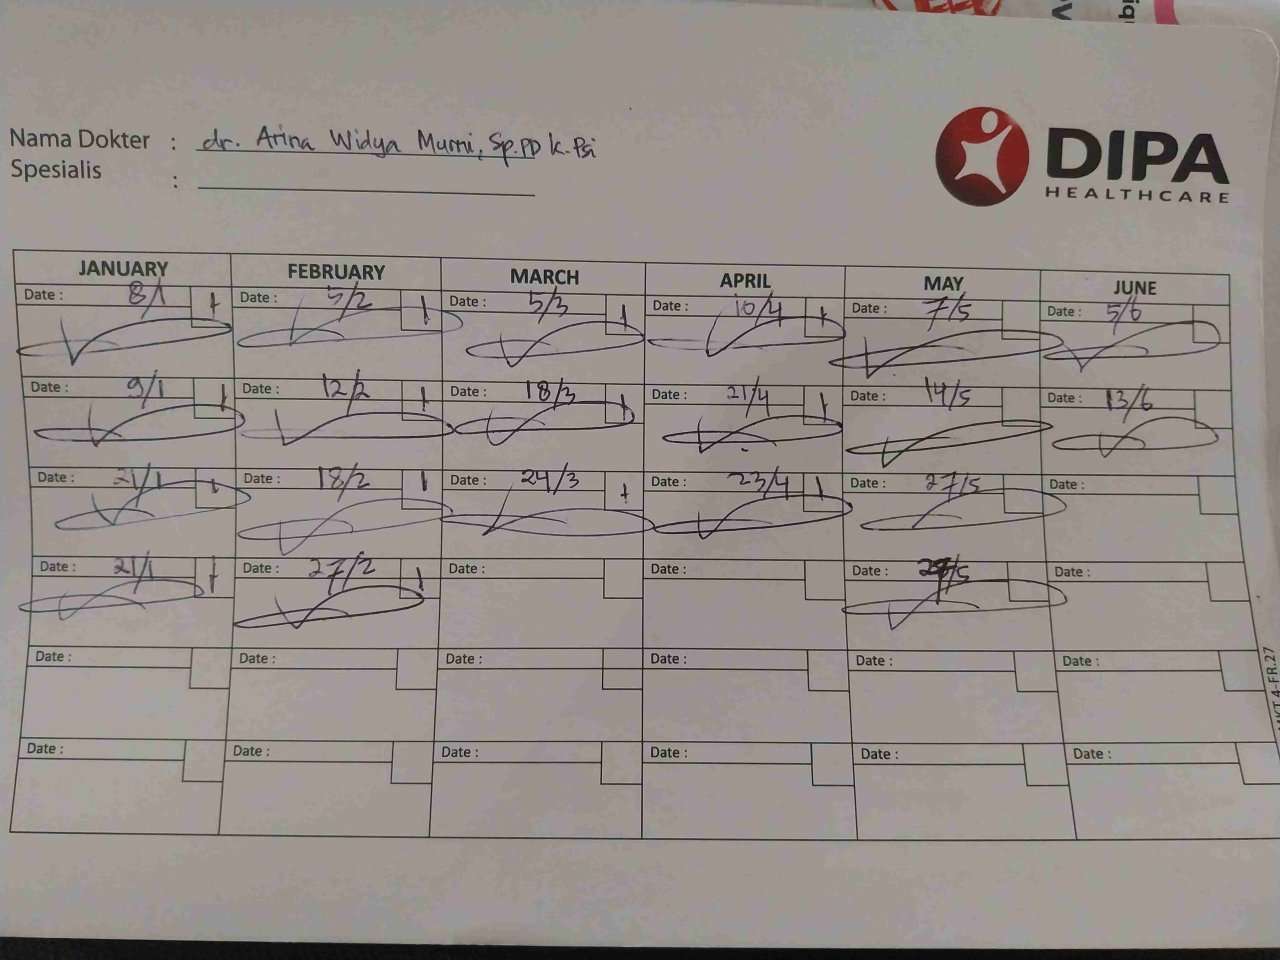 Nama Dokter : dr. Arina Widya Murni, Sp.PD K-Psi
Spesialis :
DIPA
HEALTHCARE
JANUARY FEBRUARY MARCH APRIL MAY JUNE
Date : 8/1 Date : 5/2 Date : 5/3 Date : 10/4 Date : 7/5 Date : 5/6
Date : 9/1 Date : 12/2 Date : 18/3 Date : 21/4 Date : 14/5 Date : 13/6
Date : 21/1 Date : 18/2 Date : 24/3 Date : 23/4 Date : 27/5 Date :
Date : 21/1 Date : 27/2 Date : Date : Date : Date :
Date : Date : Date : Date : Date : Date :
Date : Date : Date : Date : Date : Date :